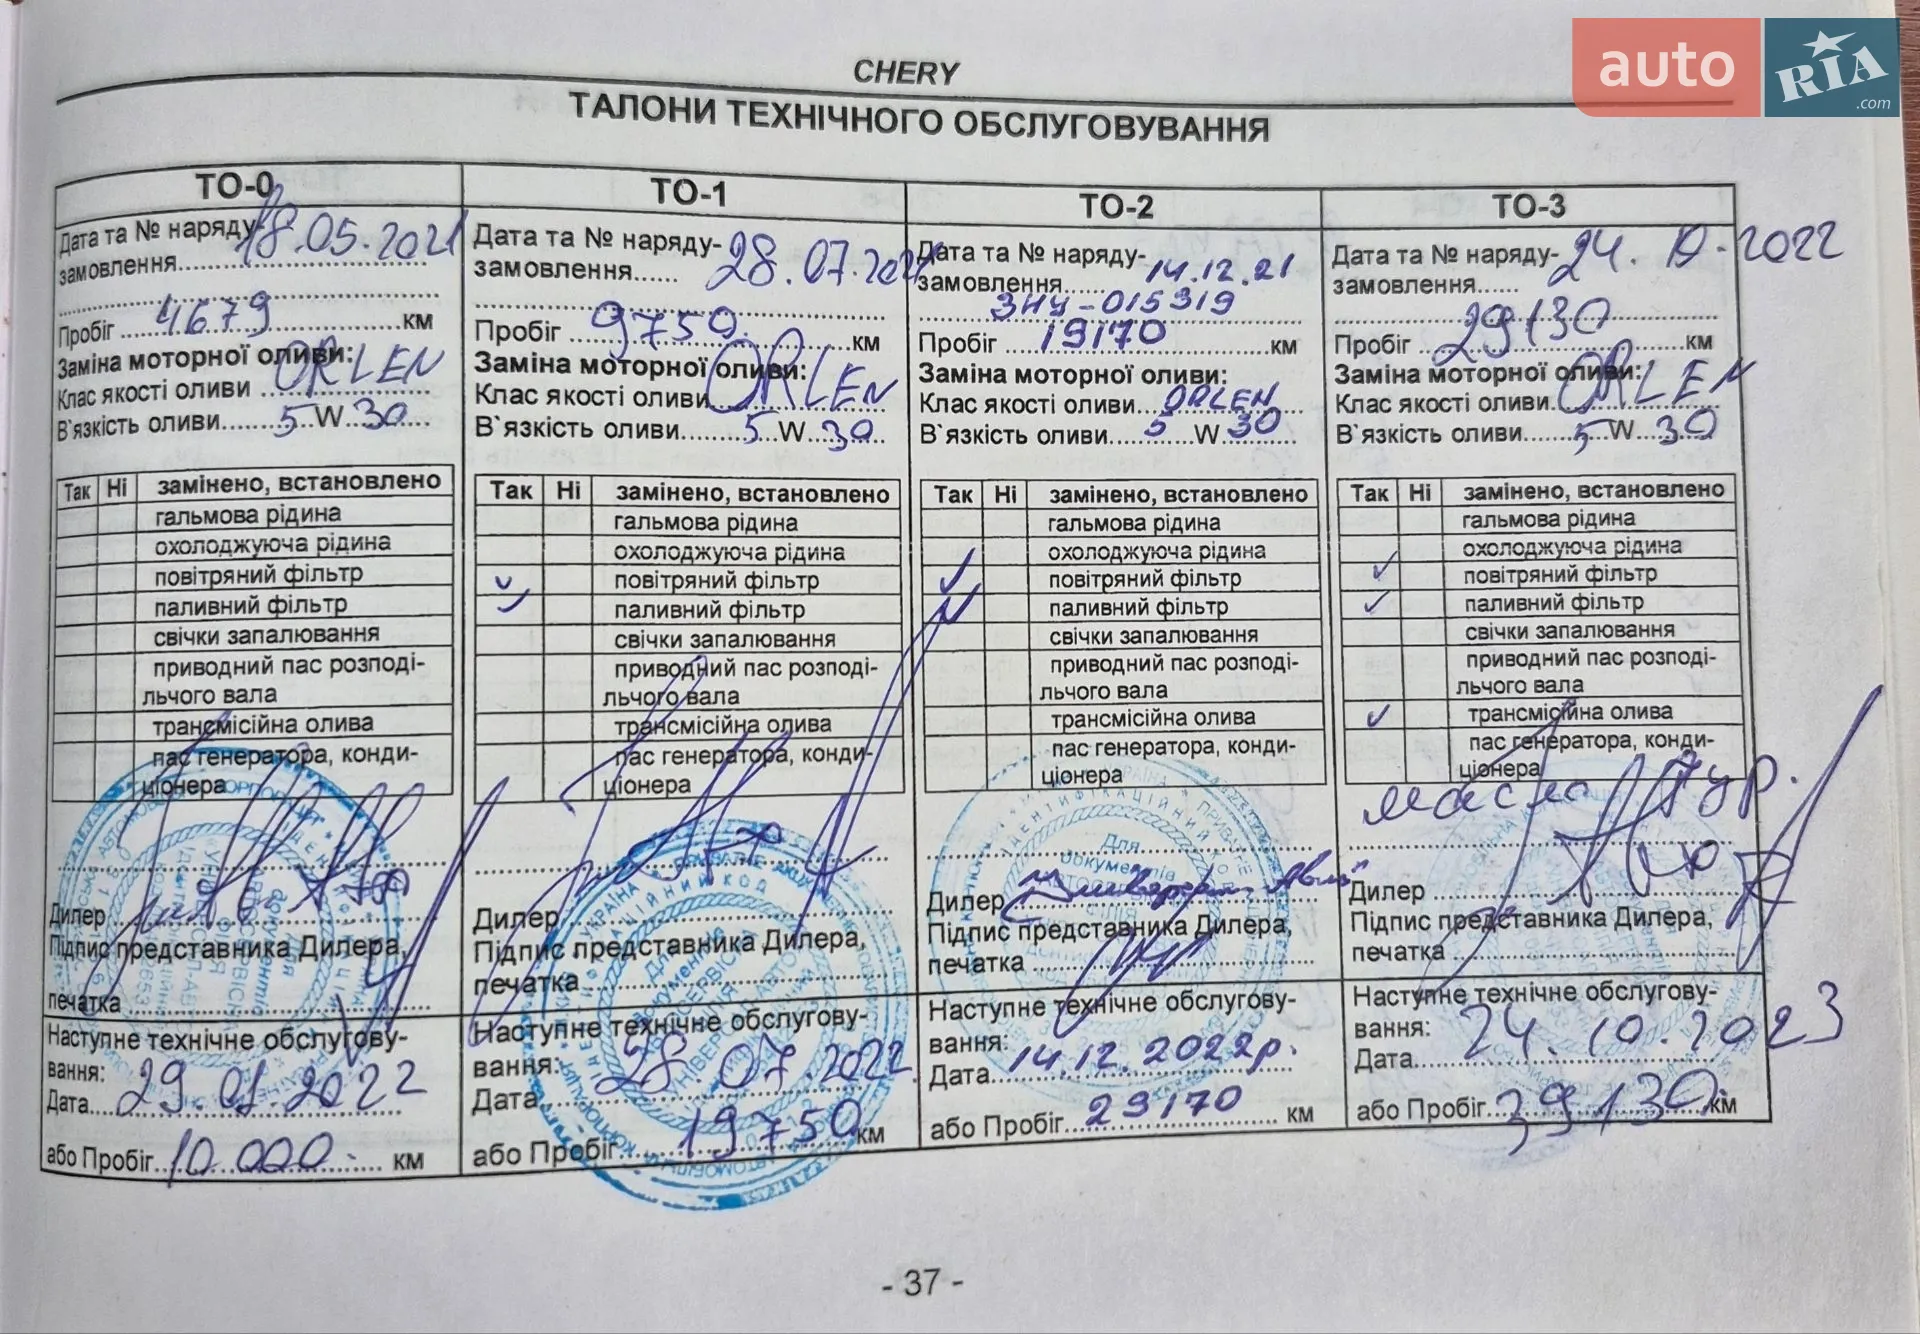 auto RIA.com
CHERY
ТАЛОНИ ТЕХНІЧНОГО ОБСЛУГОВУВАННЯ
ТО-0
Дата та № наряду- 18.05.2021
замовлення
Пробіг 4679 км
Заміна моторної оливи:
Клас якості оливи ORLEN
В`язкість оливи 5 W 30
Так Ні замінено, встановлено
гальмова рідина
охолоджуюча рідина
повітряний фільтр
паливний фільтр
свічки запалювання
приводний пас розподі-
льчого вала
трансмісійна олива
пас генератора, конди-
ціонера
Дилер
Підпис представника Дилера,
печатка
Наступне технічне обслугову-
вання:
Дата 29.01.2022
або Пробіг 10.000 км
ТО-1
Дата та № наряду- 28.07.2021
замовлення
Пробіг 9750 км
Заміна моторної оливи:
Клас якості оливи ORLEN
В`язкість оливи 5 W 30
Так Ні замінено, встановлено
гальмова рідина
охолоджуюча рідина
повітряний фільтр
паливний фільтр
свічки запалювання
приводний пас розподі-
льчого вала
трансмісійна олива
пас генератора, конди-
ціонера
Дилер
Підпис представника Дилера,
печатка
Наступне технічне обслугову-
вання:
Дата 28.07.2022
або Пробіг 19750 км
ТО-2
Дата та № наряду-
замовлення 14.12.21
ЗНУ-015319
Пробіг 19170 км
Заміна моторної оливи:
Клас якості оливи ORLEN
В`язкість оливи 5 W 30
Так Ні замінено, встановлено
гальмова рідина
охолоджуюча рідина
повітряний фільтр
паливний фільтр
свічки запалювання
приводний пас розподі-
льчого вала
трансмісійна олива
пас генератора, конди-
ціонера
Для
документів
Дилер
Підпис представника Дилера,
печатка
Наступне технічне обслугову-
вання:
Дата 14.12.2022р.
або Пробіг 29170 км
ТО-3
Дата та № наряду- 24.10.2022
замовлення
Пробіг 29130 км
Заміна моторної оливи:
Клас якості оливи ORLEN
В`язкість оливи 5 W 30
Так Ні замінено, встановлено
гальмова рідина
охолоджуюча рідина
повітряний фільтр
паливний фільтр
свічки запалювання
приводний пас розподі-
льчого вала
трансмісійна олива
пас генератора, конди-
ціонера
масло
Дилер
Підпис представника Дилера,
печатка
Наступне технічне обслугову-
вання:
Дата 24.10.2023
або Пробіг 39130 км
- 37 -